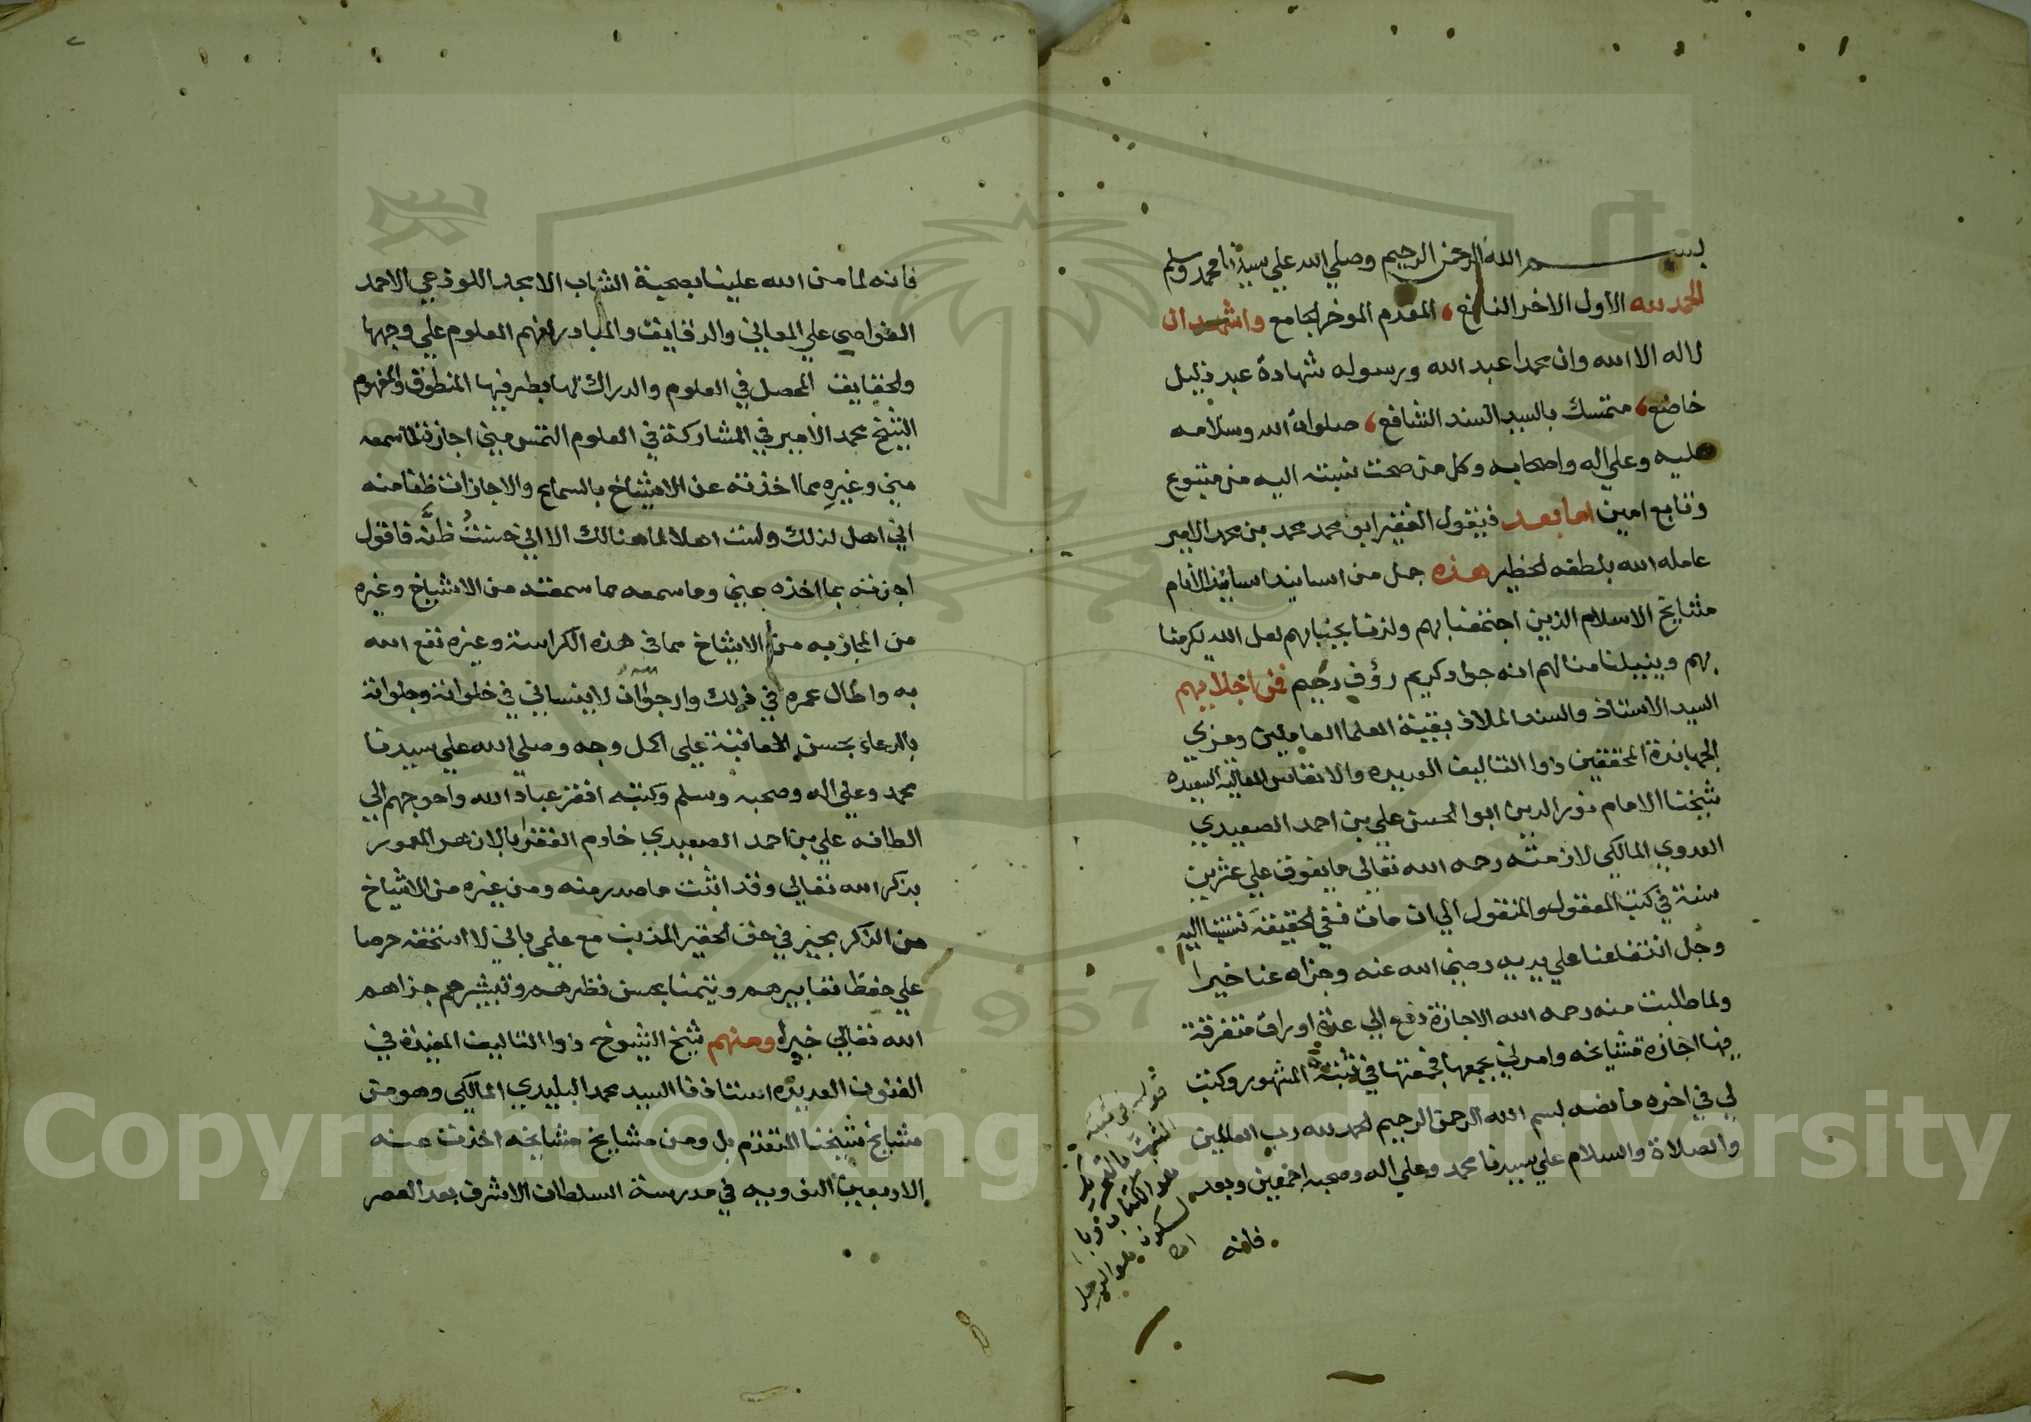 بسم الله الرحمن الرحيم وصلي الله علي سيدنا محمد وسلم
الحمد لله الاول الاخر النافع المقدم الموخر الجامع واشهد ان
لااله الا الله وان محمدا عبد الله ورسوله شهادة عبد ذليل
خاضع متمسك بالسيد السند الشافع صلوات الله وسلامه
عليه وعلي اله واصحابه وكل من صحت نسبته اليه من متبوع
وتابع امين اما بعد فيقول الفقير ابو محمد محمد بن محمد الامير
عامله الله بلطفه الخطير هذه جمل من اسانيد اسانيذ الأنام
مشايخ الاسلام الذين اجتمعنا بهم ولذنا بجنابهم لعل الله يكرمنا
بهم وينيلنا منالهم انه جواد كريم رؤف رحيم فمن اجلايهم
السيد الاستاذ والسند الملاذ بقية العلما العاملين ومزي
الجهابذة المحققين ذوا التاليف العديده والانفاس العاليه السعيده
شيخنا الامام نور الدين ابوا الحسن علي بن احمد الصعيدي
العدوي المالكي لازمته رحمه الله تعالي ما يفوق علي عشرين
سنة في كتب المعقول والمنقول الي ان مات ففي الحقيقة نسبتنا اليه
وجل انتفاعنا علي يديه رضي الله عنه وجزاه عنا خيرا
ولما طلبت منه رحمه الله الاجازة دفع الي عدة اوراق متفرقة
فيها اجازة مشايخه وامرني بجمعها فجمعتها في ثبته المشهور وكتب
لي في اخره ما نصه بسم الله الرحمن الرحيم الحمد لله رب العالمين
والصلاة والسلام علي سيدنا محمد وعلي اله وصحبه اجمعين وبعد
فانه
قوله في ثبته
فانه لما من الله علينا بصحبة الشاب الامجد اللوذعي الاحمد
الغواص علي المعاني والدقايق والمبادر لفهم العلوم علي وجهها
والحقايق المحصل في العلوم والدراك لها بطرفيها المنطوق والمفهوم
الشيخ محمد الامير في المشاركة في العلوم التمس مني اجازة لما سمعه
مني وغيره مما اخذته عن الاشياخ بالسماع والاجازات ظنا منه
اني اهل لذلك ولست اهلا لما هنالك الا اني حسنت ظنه فاقول
اجزته بما اخذه عني وما سمعه مما سمعته من الاشياخ وغيره
من المجاز به من الاشياخ مما في هذه الكراسة وغيره نفع الله
به واطال عمره في ذلك وارجوا ان لا ينساني في خلواته وجلواته
بالدعاء بحسن العاقبة علي اكمل وجه وصلي الله علي سيدنا
محمد وعلي اله وصحبه وسلم وكتبه افقر عباد الله واحوجهم الي
الطافه علي بن احمد الصعيدي خادم الفقرا بالازهر المعمور
بذكر الله تعالي وقد اثبت ما صدر منه ومن غيره من الاشياخ
من الذكر بخير في حق الحقير المذنب مع علمي باني لا استحقه حرصا
علي حفظ تعابيرهم وتيمنا بحسن نظرهم وتبشيرهم جزاهم
الله تعالي خيرا ومنهم شيخ الشيوخ ذوا التاليف المفيدة في
الفنون العديده استاذنا السيد محمد البليدي المالكي وهو من
مشايخ شيخنا المتقدم بل ومن مشايخ مشايخه اخذت عنه
الاربعين النوويه في مدرسة السلطان الاشرف بعد العصر